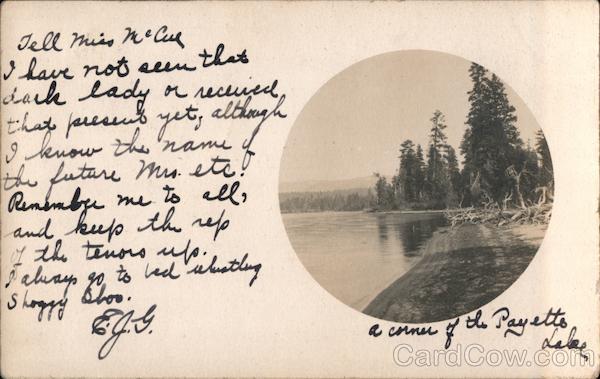 Tell Miss McCue
I have not seen that
dark lady or received
that present yet, although
I know the name of
the future Mrs. etc.
Remember me to all,
and keep the rep
of the tenors up.
I always go to bed whistling
Shoggy Bloo.
E.J.G.
a corner of the Payette
Lake
CardCow.com